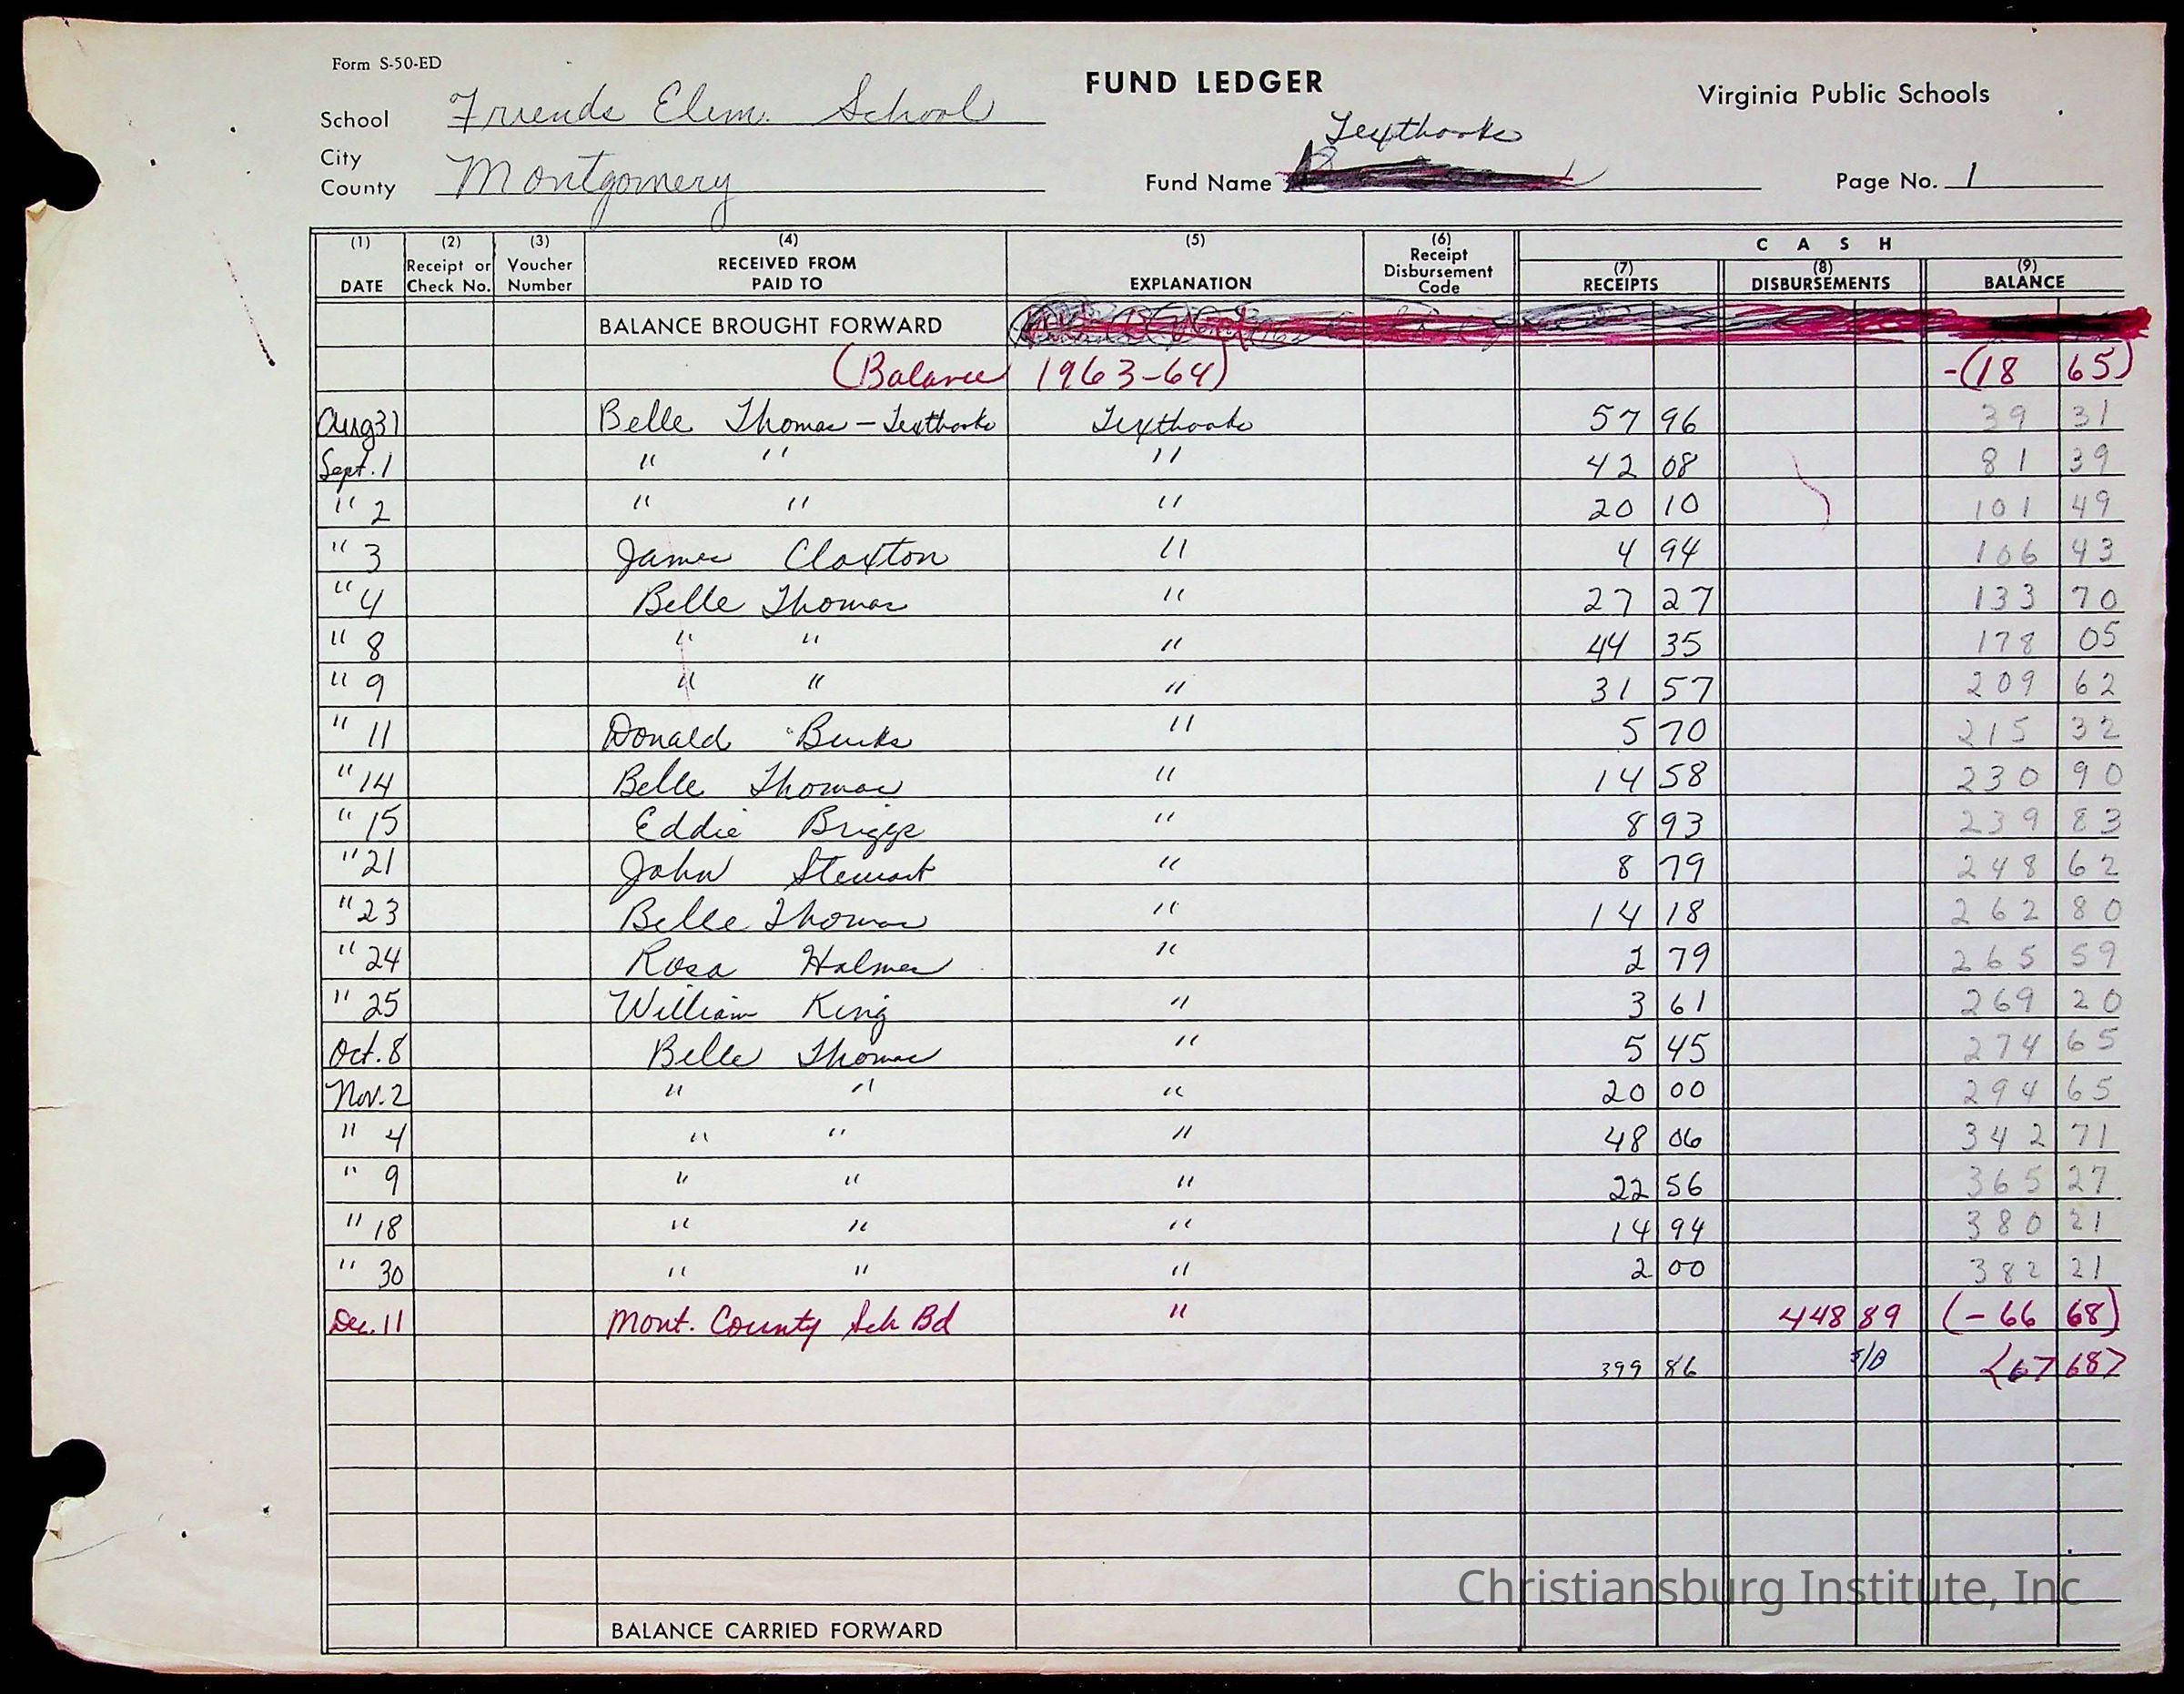 Form S-50-ED
FUND LEDGER
Virginia Public Schools
School Friends Elem. School
City
County Montgomery
Textbooks
Fund Name
Page No. 1
(1) DATE (2) Receipt or Check No. (3) Voucher Number (4) RECEIVED FROM PAID TO (5) EXPLANATION (6) Receipt Disbursement Code CASH (7) RECEIPTS (8) DISBURSEMENTS (9) BALANCE
BALANCE BROUGHT FORWARD
(Balance 1963-64) -(18 65)
Aug 31 Belle Thomas - Textbooks Textbooks 57 96 39 31
Sept. 1 " " " 42 08 81 39
" 2 " " " 20 10 101 49
" 3 James Claxton " 4 94 106 43
" 4 Belle Thomas " 27 27 133 70
" 8 " " " 44 35 178 05
" 9 " " " 31 57 209 62
" 11 Donald Burks " 5 70 215 32
" 14 Belle Thomas " 14 58 230 90
" 15 Eddie Briggs " 8 93 239 83
" 21 John Stewart " 8 79 248 62
" 23 Belle Thomas " 14 18 262 80
" 24 Rosa Holmes " 2 79 265 59
" 25 William King " 3 61 269 20
Oct. 8 Belle Thomas " 5 45 274 65
Nov. 2 " " " 20 00 294 65
" 4 " " " 48 06 342 71
" 9 " " " 22 56 365 27
" 18 " " " 14 94 380 21
" 30 " " " 2 00 382 21
Dec. 11 Mont. County Sch Bd " 448 89 (- 66 68)
399 86 S/B <67 68>
BALANCE CARRIED FORWARD
Christiansburg Institute, Inc